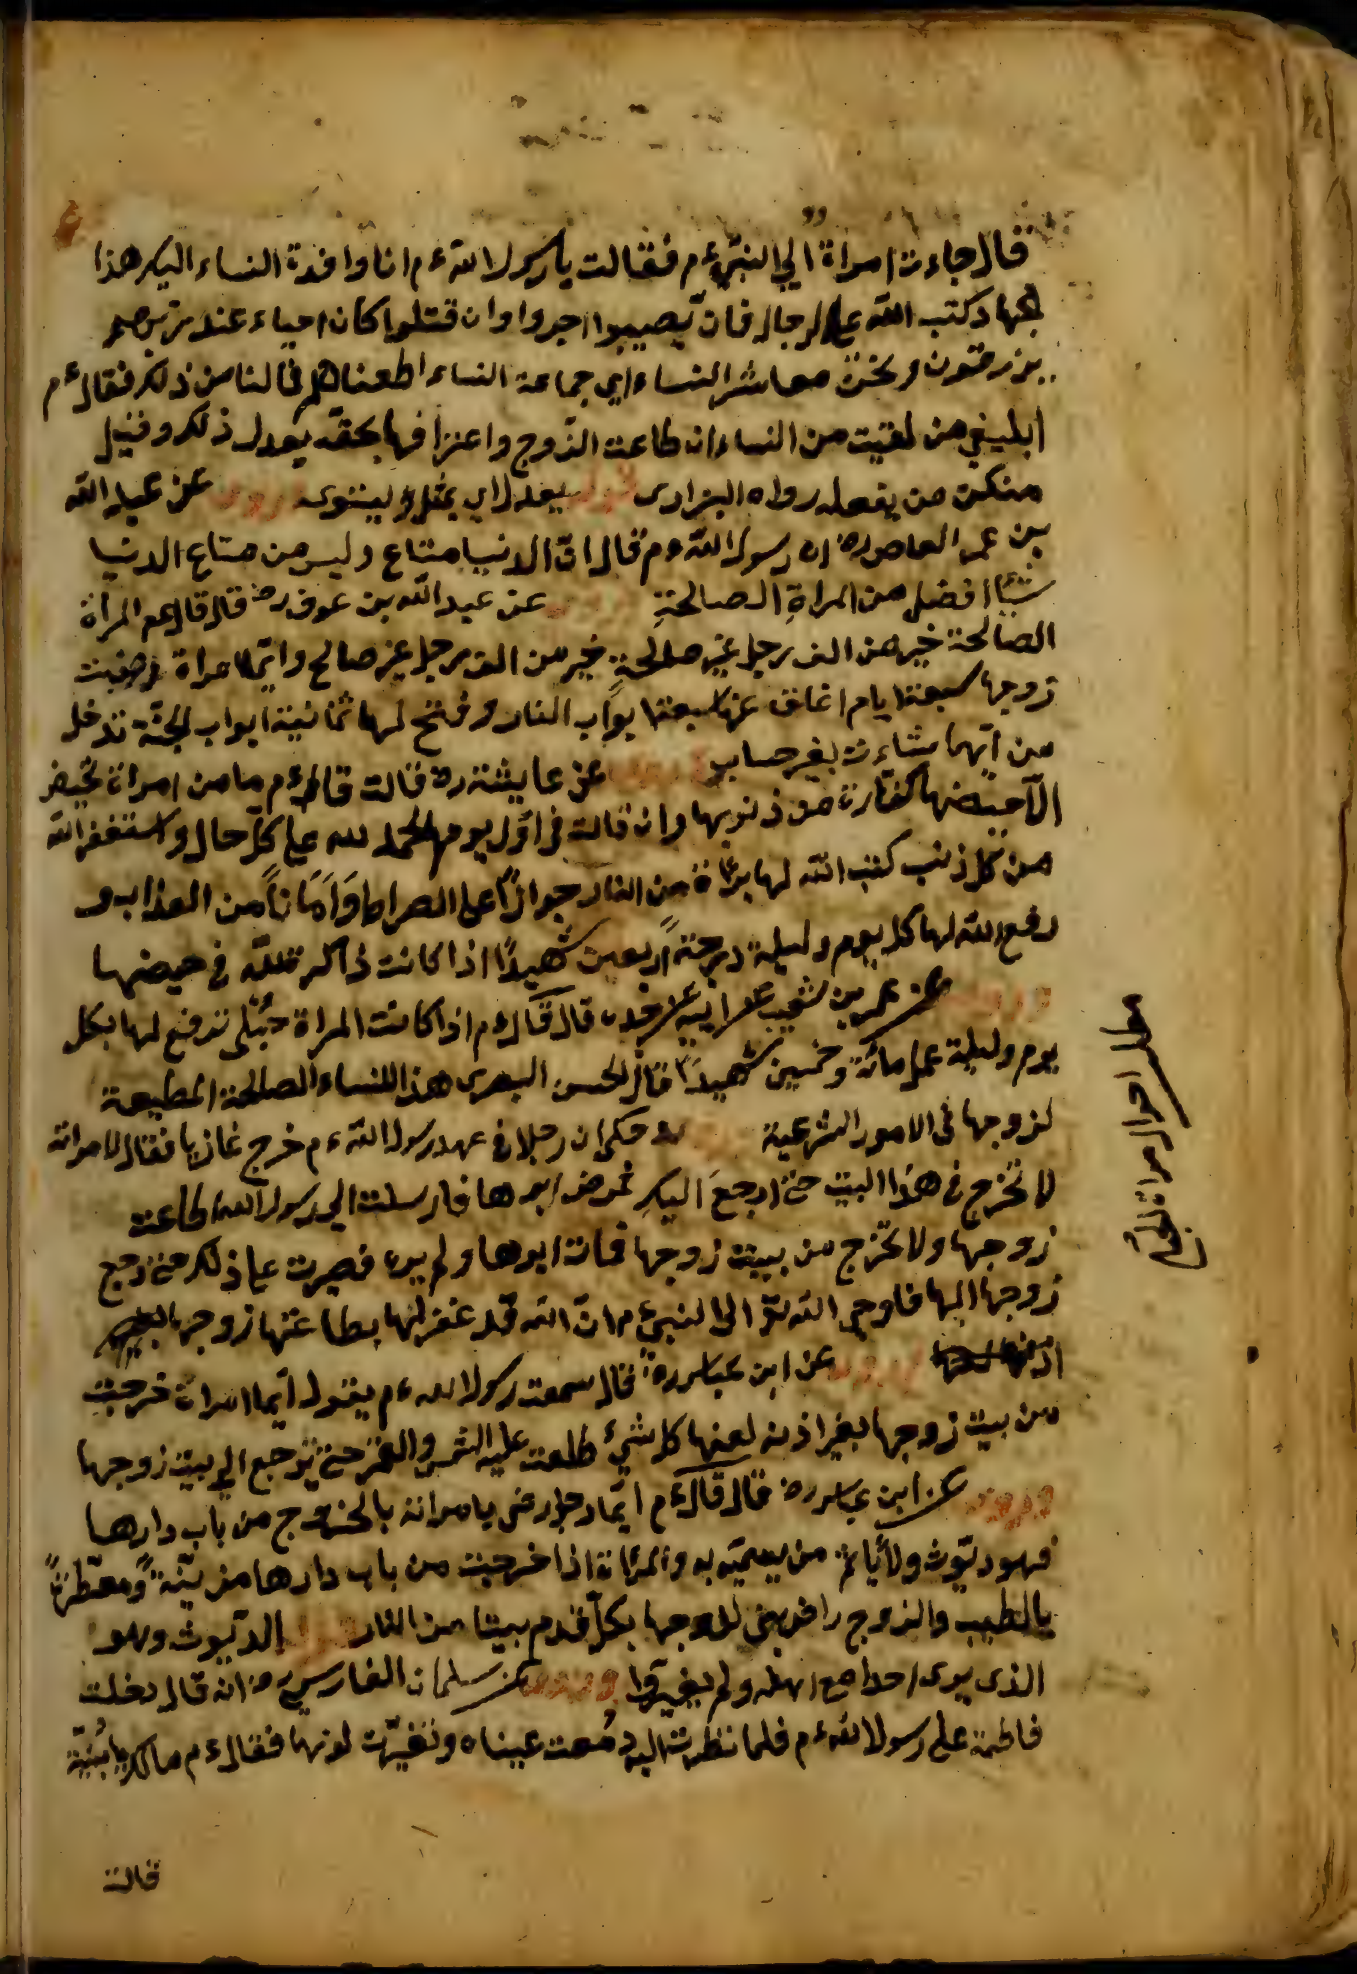 قال جاءت امراة الي النبي ءم فقالت يا رسول الله ءم انا وافدة النساء اليك هذا
الجهاد كتب الله على الرجال فان يصيبوا اجروا وان قتلوا كان احياء عند ربهم
يرزقون ونحن معاشر النساء اي جماعة النساء اطعناهم فما لنا من ذلك فقال ءم
ابلغي من لقيت من النساء ان طاعت الزوج واعترافها بحقه يعدل ذلك وقليل
منكن من يفعله رواه البزار قوله يعدل اي يمثل ويستوى وروى عن عبد الله
بن عمر العاص رض ان رسول الله ءم قال ان الدنيا متاع وليس من متاع الدنيا
شيأ افضل من المراة الصالحة وروى عن عبد الله بن عوف رض قال قال عم المرأة
الصالحة خير من الف رجل غير صالحة خير من الف رجل غير صالح وايما امراة
زوجها سبعة ايام اغلق عنها سبعة ابواب النار وفتح لها ثمانية ابواب الجنة تدخل
من ايها شاءت بغير حساب وروى عن عايشة رض قالت قال ءم ما من امراة تحيض
الا حيضها كفارة من ذنوبها وان قالت في اول يومها الحمد لله على كل حال واستغفر الله
من كل ذنب كتب الله لها براة من النار جوازا على الصراط وامانا من العذاب و
رفع الله لها كل يوم وليلة درجة اربعين شهيدا اذا كانت ذاكرة لله في حيضها
وروى عن عمر بن شعيب عن ابيه عن جده قال قال ءم اذا كانت المراة حبلى ترفع لها بكل
يوم وليلة عمل مائة وخمسين شهيدا قال الحسن البصرى هذا للنساء الصالحة المطيعة
لزوجها في الامور الشرعية حكى ان رجلا في عهد رسول الله ءم خرج غازيا فقال لامراته
لا تخرج في هذا البيت حتى ارجع اليك فمرض ابوها فارسلت الي رسول الله اطاعت
زوجها ولا تخرج من بيت زوجها فمات ابوها ولم يره فصبرت على ذلك حتى رجع
زوجها اليها فاوحى الله تع الى النبي ءم ان الله قد غفر لها بطاعتها زوجها
وروى عن ابن عباس رض قال سمعت رسول الله ءم يقول ايما امراة خرجت
من بيت زوجها بغير اذنه لعنها كل شيء طلعت عليه الشمس والقمر حتى ترجع الي بيت زوجها
وروى عن ابن عباس رض قال قال ءم ايما رجل رضى يامراته بالخروج من باب دارها
فهو ديوث ولا ياثم من يسميه به والمراة اذا خرجت من باب دارها مزينة ومعطرة
بالطيب والزوج راض بنى لزوجها بكل قدم بيتا من النار قوله الديوث وهو
الذى يرى احدا مع اهله ولم يغيرها وروى عن سلمان الفارسي رض انه قال دخلت
فاطمة على رسول الله ءم فلما نظرت اليه دمعت عيناه وتغيرت لونها فقال ءم مالك يا بنية
قالت